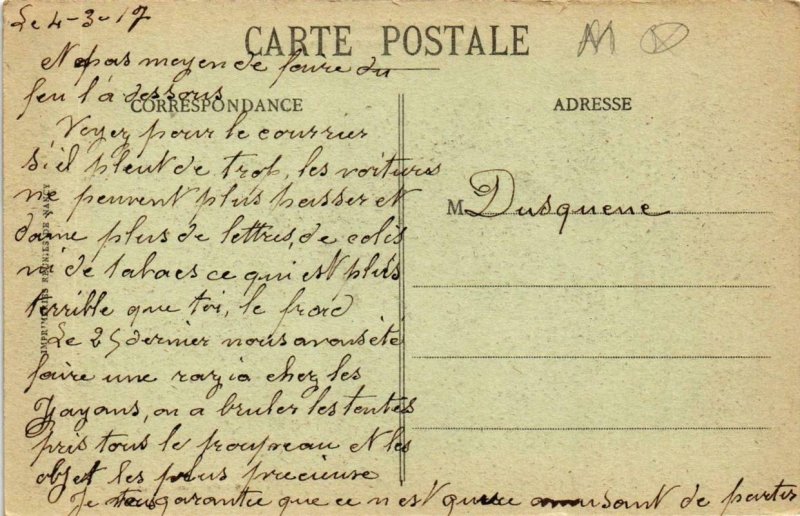 Le 4-3-17
CARTE POSTALE
N pas moyen de faire du
feu l'a dessous
CORRESPONDANCE
ADRESSE
Voyez pour le courrier
s'il pleut de trop, les voitures
ne peuvent plus passer et
dame plus de lettres, de colis
ni de tabacs ce qui est plus
terrible que toi, le froid
Le 25 dernier nous avons été
faire une razia chez les
Zayans, on a bruler les tentes
pris tous le troupeau et les
objet les plus precieuse
Je garantie que ce n est guere amusant de partir
M Dusquene
IMPRIMERIES REUNIES DE NANCY